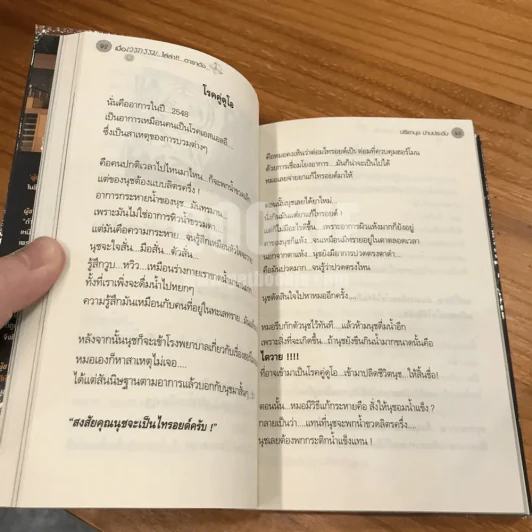 92 เมื่อเวรกรรม...ไล่ล่า!!...ดาราดัง...
โรคคู่ดูโอ
นั่นคืออาการในปี ..2548
เป็นอาการเหมือนคนเป็นโรคเอสแอลอี...
ซึ่งเป็นสาเหตุของการบวมต่างๆ
คือคนปกติเวลาไปไหนมาไหน..ก็จะพกน้ำขวด
แต่ของนุชต้องแบบลิตรครึ่ง !
อาการกระหายน้ำของนุช...มันทรมาน
เพราะมันไม่ใช่อาการหิวน้ำธรรมดา
แต่มันคือความกระหาย...จนรู้สึกเหมือนหัวใจ
นุชจะใจสั่น...มือสั่น...ตัวสั่น...
รู้สึกวูบ...หวิว...เหมือนร่างกายเราขาดน้ำมานาน
ทั้งที่เราเพิ่งจะดื่มน้ำไปหยกๆ
ความรู้สึกมันเหมือนกับคนที่อยู่ในทะเลทราย...
หลังจากนั้นนุชก็จะเข้าโรงพยาบาลเกี่ยวกับเรื่อง
หมอเองก็หาสาเหตุไม่เจอ....
ได้แต่สันนิษฐานตามอาการแล้วบอกกับนุชมาสั้นๆ
“สงสัยคุณนุชจะเป็นไทรอยด์ครับ !”
ปรียานุช ปานประดับ 93
คือหมอคงเห็นว่าต่อมไทรอยด์เป็นต่อมที่ควบคุมฮอร์โมน
ด้วยการเชื่อมโยงอาการ....มันก็น่าจะเป็นไปได้
หมอเลยจ่ายยาแก้ไทรอยด์มาให้
แต่ก็ไม่มีอะไรดีขึ้น...เพราะอาการผิวแห้งมากก็ยังอยู่
นุชยังมีอาการปวดตรงตาดำ...
คือมันปวดมาก...จนรู้ว่าปวดตรงไหน
นุชตัดสินใจไปหาหมออีกครั้ง
หมอรีบกักตัวนุชไว้ทันที....แล้วห้ามนุชดื่มน้ำอีก
เพราะสิ่งที่จะเกิดขึ้น...ถ้านุชยังขืนกินน้ำมากขนาดนั้นคือ
ไตวาย !!!!
ที่อาจเข้ามาเป็นโรคคู่ดูโอ...เข้ามาปลิดชีวิตนุช...ให้สิ้นชื่อ!
ตอนนั้น...หมอมีวิธีแก้กระหายคือ สั่งให้นุชอมน้ำแข็ง ?
กลายเป็นว่า....แทนที่นุชจะพกน้ำขวดลิตรครึ่ง....
นุชเลยต้องพกกระติกน้ำแข็งแทน !